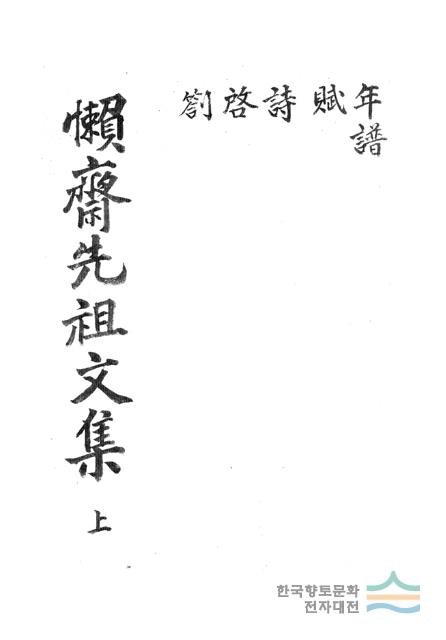 年譜 賦 詩 啓 劄
懶齋先祖文集 上
한국향토문화
전자대전